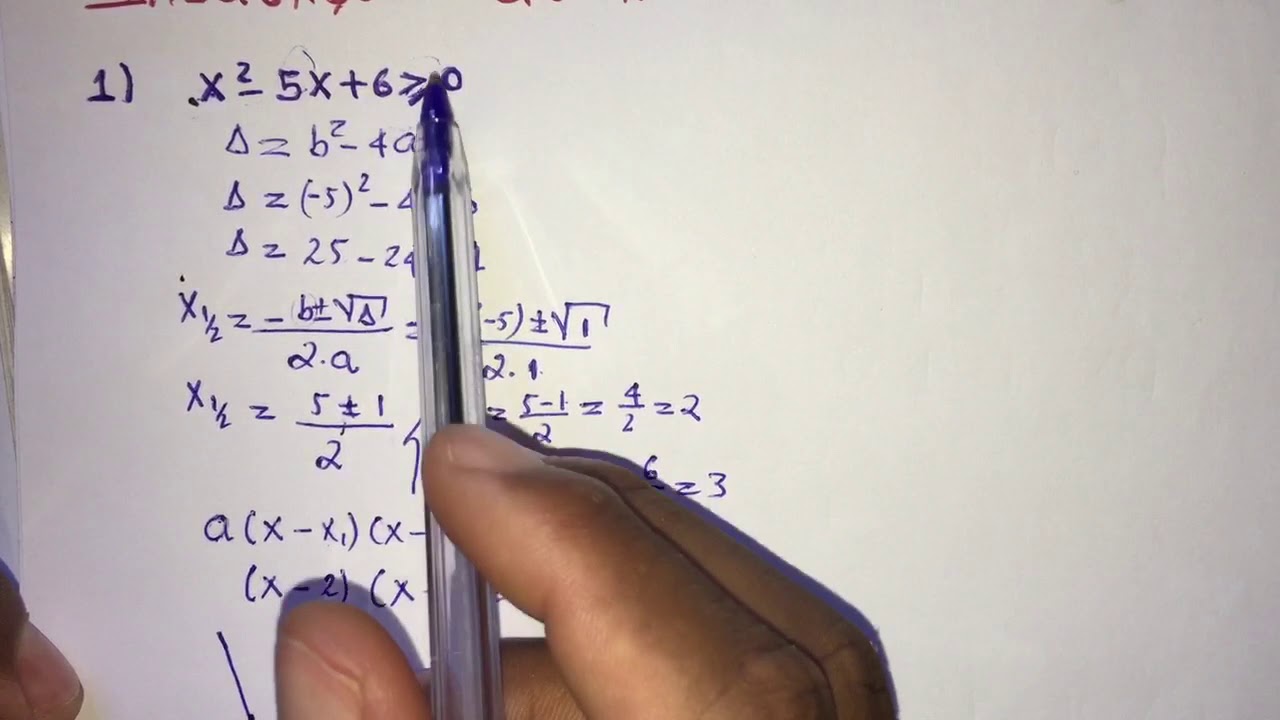 1) x² - 5x + 6 ≥ 0
Δ = b² - 4a
Δ = (-5)² - 4
Δ = 25 - 24 1
x₁/₂ = -b ± √Δ / 2·a = (-5) ± √1 / 2·1
x₁/₂ = 5 ± 1 / 2 = 5-1 / 2 = 4/2 = 2
6 = 3
a (x - x₁) (x -
(x - 2) (x